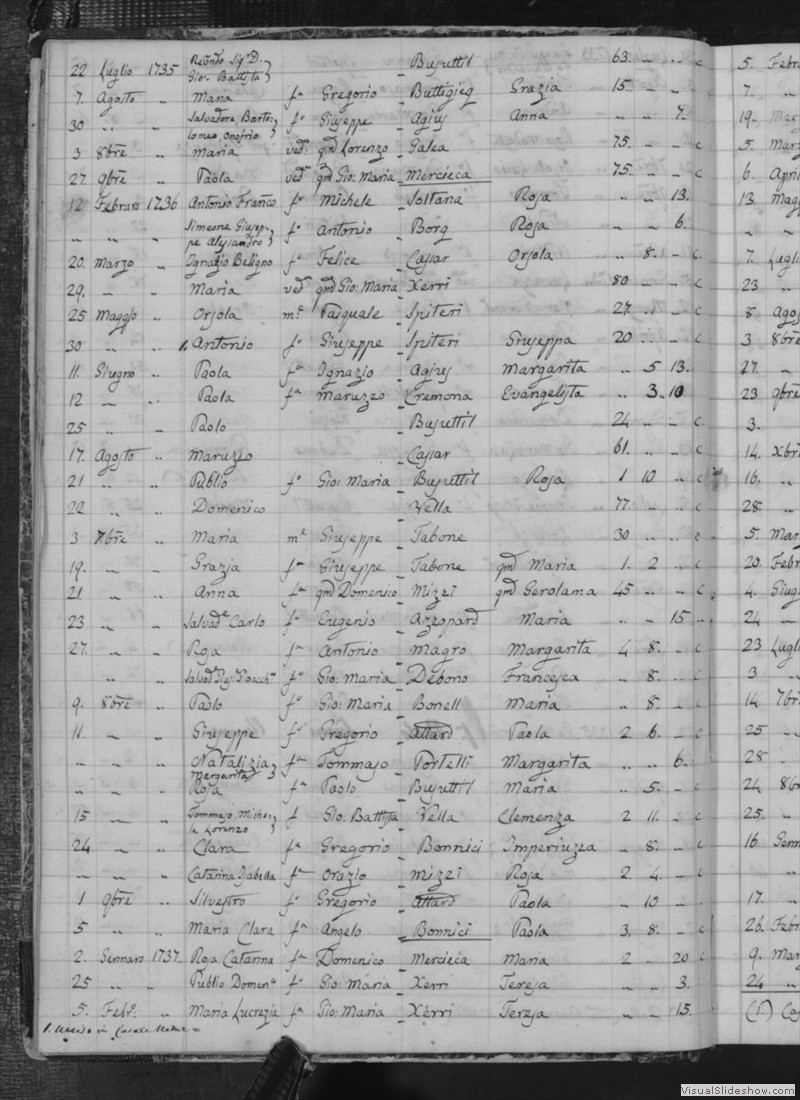 22 Luglio 1735 Reūndo Sigr D. Gio: Battista } Busuttil 63 .. .. c
7. Agosto .. Maria fa Gregorio Buttigieg Grazia 15 .. ..
30 .. .. Salvadore, Barto: lomeo, Onofrio } fo Giuseppe Agius Anna .. .. 7.
3 8bre .. Maria ved: qm̄ Lorenzo Galea 75 .. .. c
27. 9bre .. Paola ved: qm̄ Gio: Maria Mercieca 75 .. .. c
12 Febraro 1736 Antonio Franco fo Michele Soltana Rosa .. .. 13.
.. .. .. Simeone Giusep- pe Alesandro } fo Antonio Borg Rosa .. .. 6.
20. Marzo .. Ignazio Beligno fo Felice Cassar Orsola .. 8. .. c
29. .. .. Maria ved: qm̄ Gio: Maria Xerri 80 .. .. c
25 Maggio .. Orsola me Pasquale Spiteri 27 .. .. c
30 .. .. 1. Antonio fo Giuseppe Spiteri Giuseppa 20 .. .. c
11. Giugno .. Paola fa Ignazio Agius Margarita .. 5 13.
12 .. .. Paola fa Maruzzo Cremona Evangelista .. 3. 10
25 .. .. Paolo Busuttil 24 .. .. c
17. Agosto .. Maruzzo Cassar 61. .. .. c
21 .. .. Publio fo Gio: Maria Busuttil Rosa 1 10 .. c
22 .. .. Domenico Vella 77. .. .. c
3 7bre .. Maria me Giuseppe Tabone 30 .. .. c
19. .. .. Grazia fa Giuseppe Tabone qm̄ Maria 1. 2 .. c
21 .. .. Anna fa qm̄ Domenico Mizzi qm̄ Gerolama 45 .. .. c
23 .. .. Salvade Carlo fo Eugenio Azzopard Maria .. .. 15 ..
27. .. .. Rosa fa Antonio Magro Margarita 4 8. .. c
.. .. fo Gio: Maria Debono Francesca .. 8. .. c
9. 8bre .. Paolo fo Gio: Maria Bonell Maria .. 8. .. c
11. .. .. Giuseppe fo Gregorio Attard Paola 2. 6. .. c
.. .. .. Natalizia Margarita } fa Tommaso Portelli Margarita .. .. 6.
.. .. .. Rosa fa Paolo Busuttil Maria .. 5. .. c
15 .. .. Tommaso, Miche: le Lorenzo } f Gio: Battista Vella Clemenza 2 11. .. c
24 .. .. Clara fa Gregorio Bonnici Imperiuzza .. 8. .. c
.. .. .. Catarina Isabella fa Orazio Mizzi Rosa 2. 4. .. c
1 9bre .. Silvestro fo Gregorio Attard Paola .. 10 .. c
5 .. .. Maria Clara fa Angelo Bonnici Paola 3. 8. .. c
2. Gennaro 1737. Rosa Catarina fa Domenico Mercieca Maria 2 .. 20 c
25 .. .. Publio Domeno fo Gio: Maria Xerri Teresa .. .. 3.
5. Febro. .. Maria Lucrezia fa Gio: Maria Xerri Teresa .. .. 15.
1. Ucciso in Casale
5. Febra
7. ..
19. Mar
5. Marz
6. April
13. Mag
7. Lugli
23 ..
8. Agos
3 8bre
27. ..
23 9bre
3.
14. Xbr
16. ..
28. ..
5. Mar
20. Febr
4. Giug
24 ..
23 Lugli
3 ..
14 7br
25 ..
28. ..
24 8b
25. ..
16 Genn
17. ..
26. Febr
9. Mar
24 ..
(1.) Ca
VisualSlideshow.com